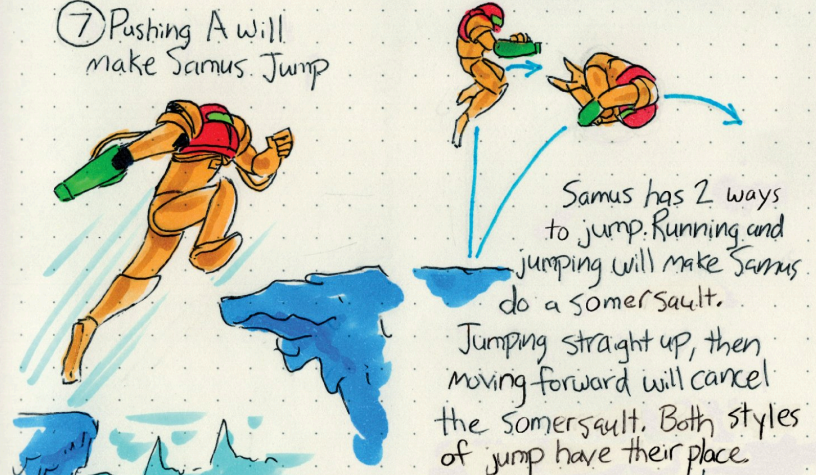 7 Pushing A will
make Samus Jump
Samus has 2 ways
to jump. Running and
jumping will make Samus
do a somersault.
Jumping straight up, then
moving forward will cancel
the somersault. Both styles
of jump have their place.